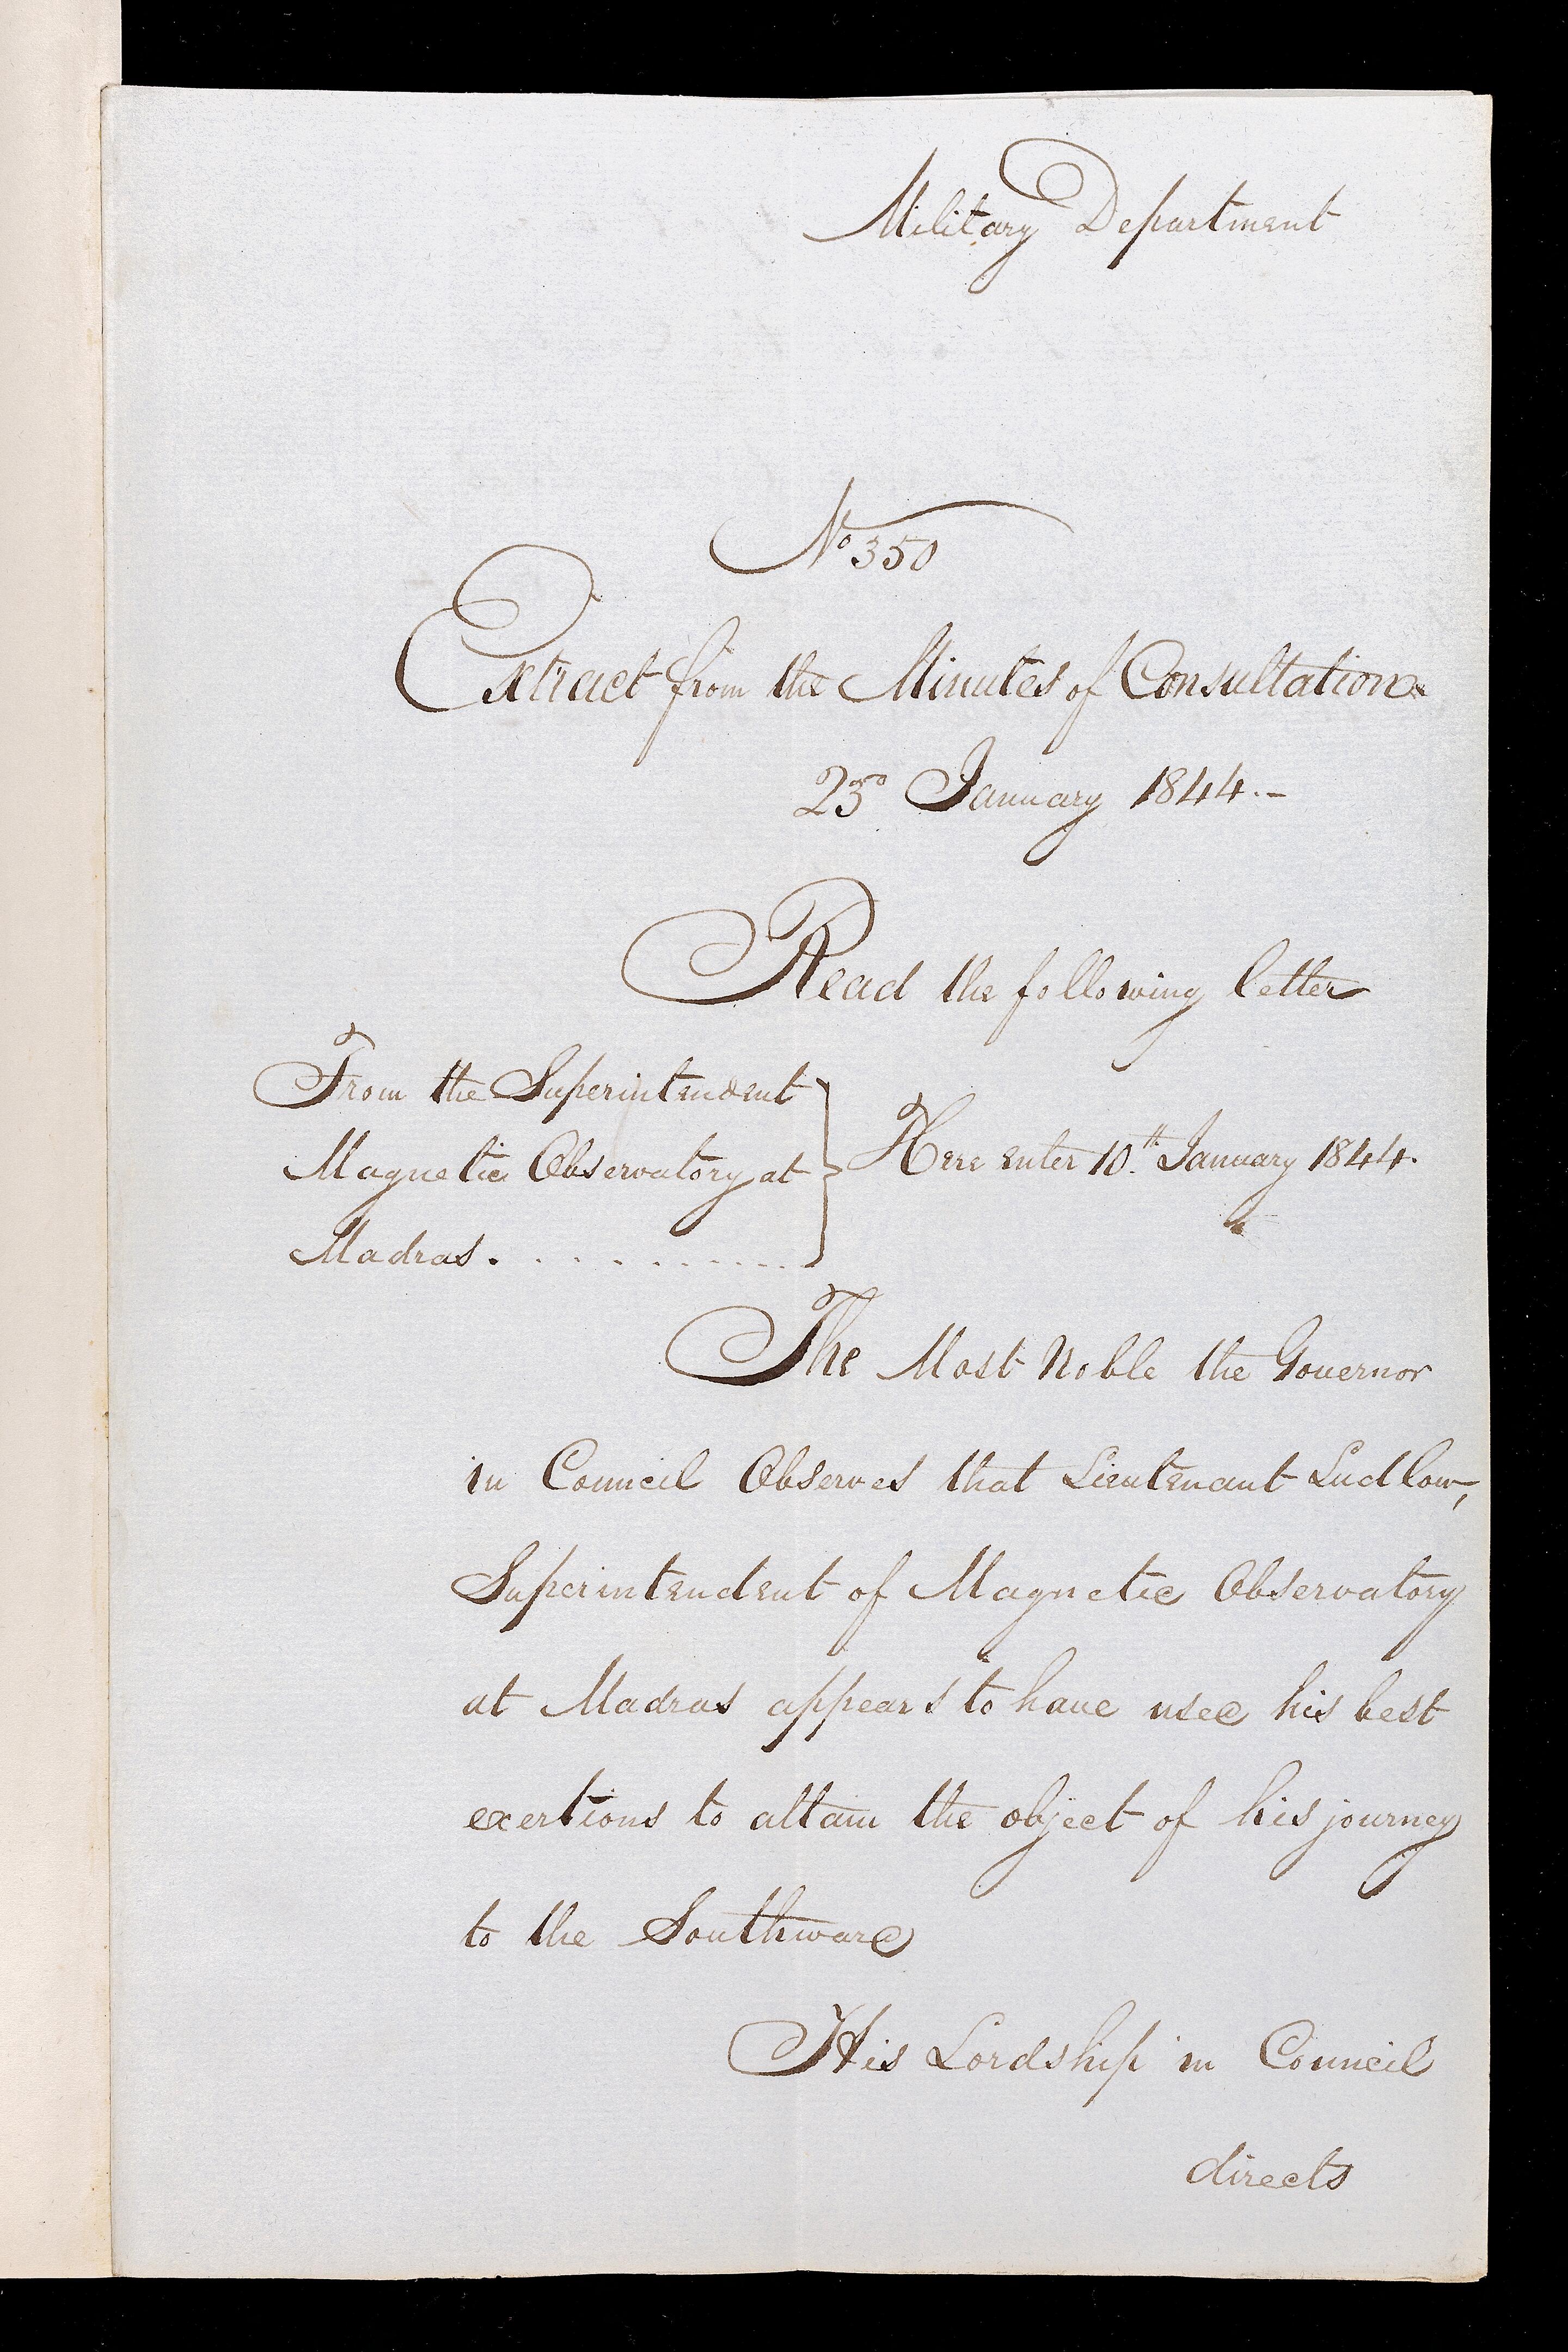 Military Department
No 350
Extract from the Minutes of Consultation
23d January 1844.-
Read the following letter
From the Superintendent
Magnetic Observatory at
Madras. . . . . . . . . .
Here enter 10th January 1844.
The Most Noble the Governor
in Council Observes that Lieutenant Ludlow,
Superintendent of Magnetic Observatory
at Madras appears to have used his best
exertions to attain the object of his journey
to the Southward
His Lordship in Council
directs